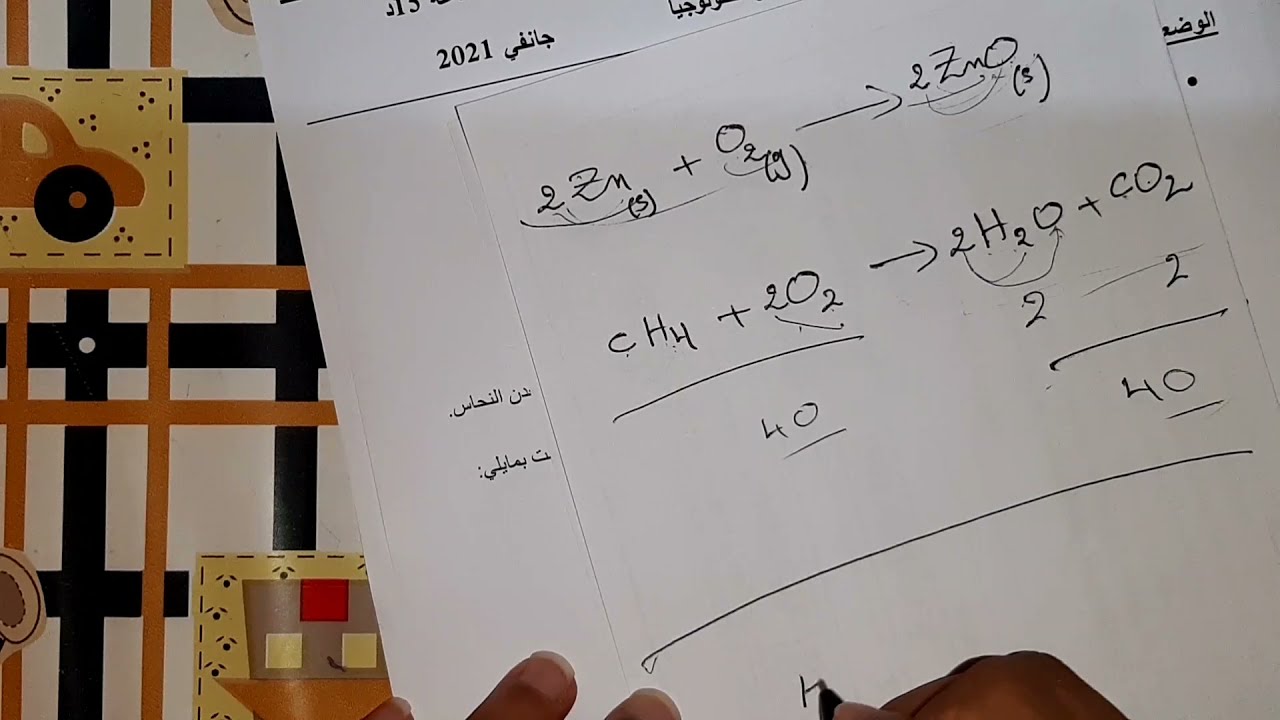 جانفي 2021
الوضع
2Zn(s) + O2(g) → 2ZnO(s)
CH4 + 2O2 → 2H2O + CO2
2 2
4O 4O
دن النحاس.
ت بمايلي:
H